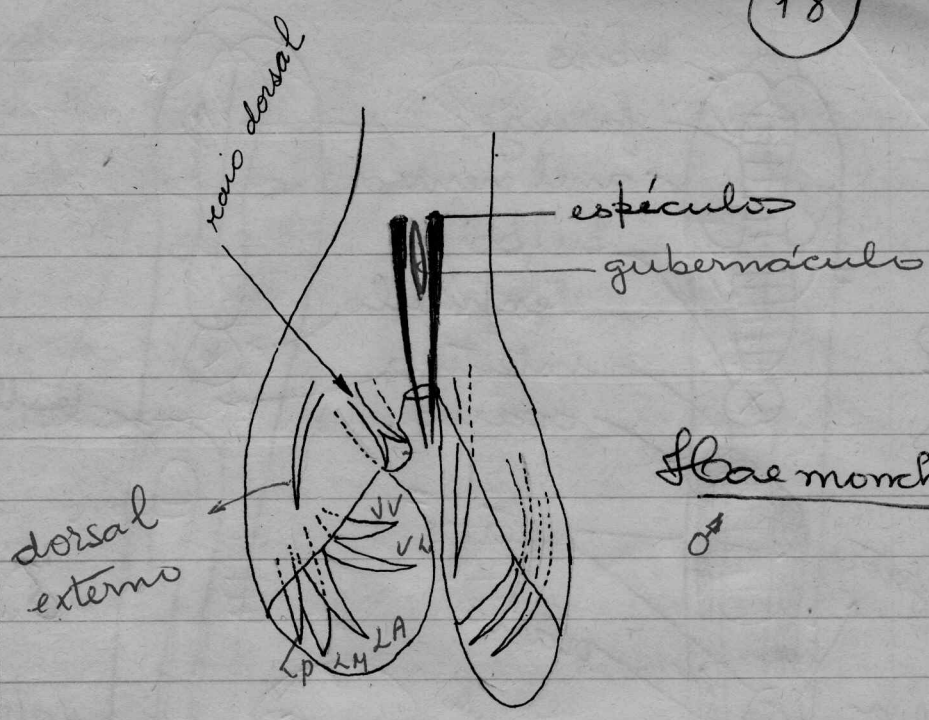 18
raio dorsal
espículos
gubernáculo
Haemonch
♂
dorsal
externo
VV
VL
LA
LM
LP